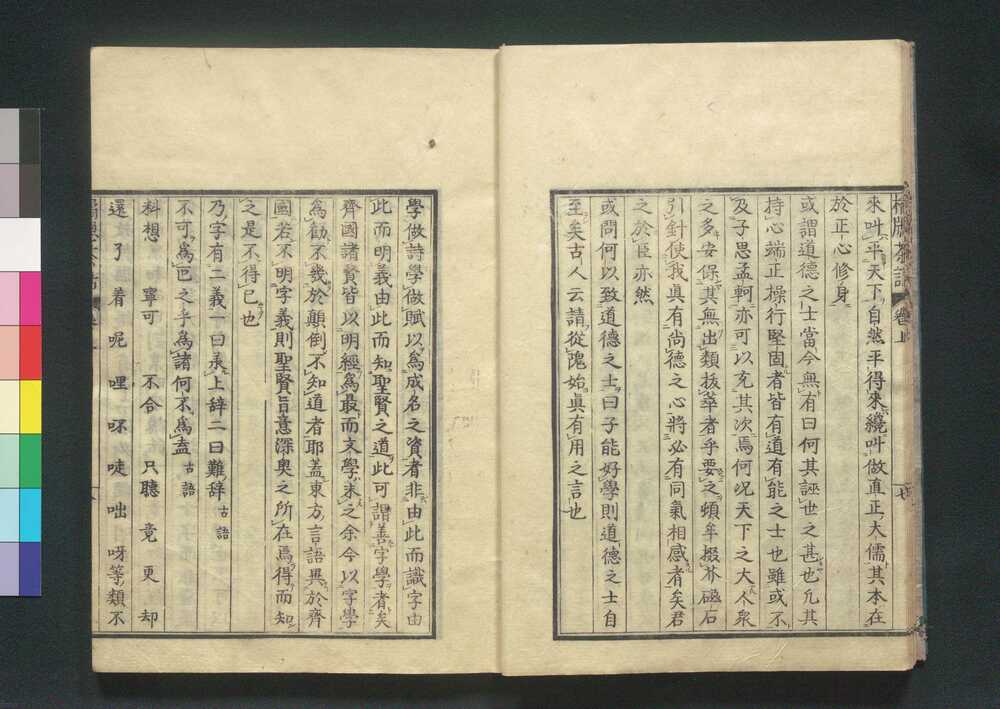 橘牕茶話 卷上
來叫平天下自然平得來纔叫做真正大儒其本在
於正心修身
或謂道德之士當今無有曰何其誣世之甚也凢其
持心端正操行堅固者皆有道有能之士也雖或不
及子思孟軻亦可以充其次焉何况天下之大人衆
之多安保其無出類拔萃者乎要之頓牟掇芥磁石
引針使我真有尚德之心將必有同氣相感者矣君
之於臣亦然
或問何以致道德之士曰子能好學則道德之士自
至矣古人云請從隗始真有用之言也
學做詩學做賦以爲成名之資者非由此而識字由
此而明義由此而知聖賢之道此可謂善字學者矣
齊國諸賢皆以明經爲最而文學末之余今以字學
爲勸不幾於顛倒不知道者耶蓋東方言語異於齊
國若不明字義則聖賢旨意深奥之所在焉得而知
之是不得已也
乃字有二義一曰承上辞二曰難辞 古語
不可爲叵之乎爲諸何不爲盍 古語
料想 寧可 不合 只聽 竟 更 却
還 了 着 呢 哩 呸 唗 咄 呀等類不